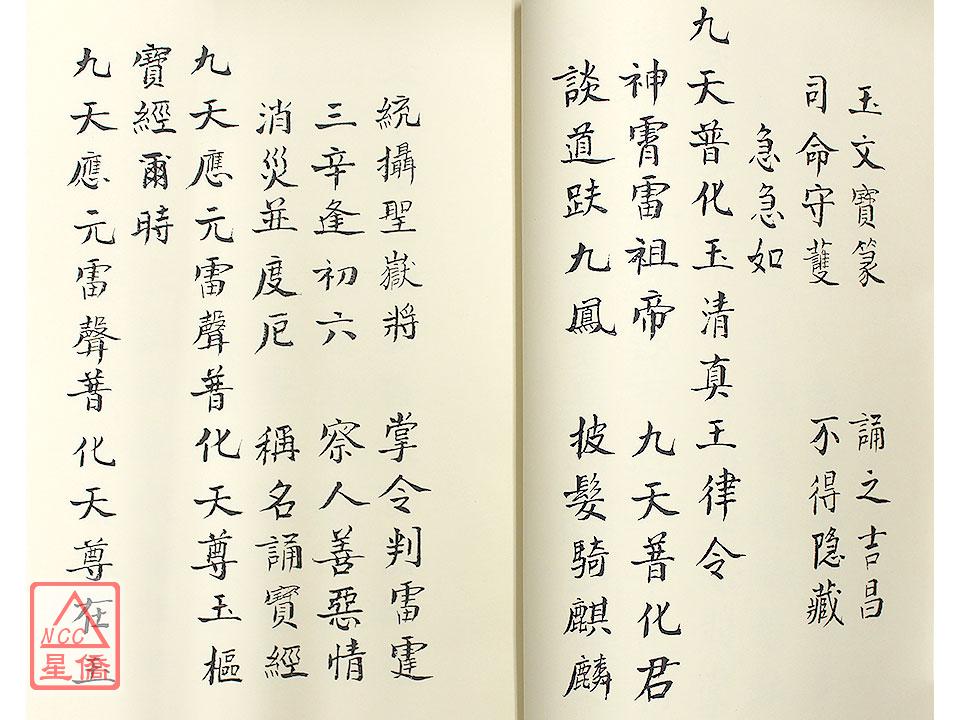 玉文寶篆　誦之吉昌
司命守護　不得隐藏
急急如
九天普化玉清真王律令
神霄雷祖帝　九天普化君
談道趺九鳳　披髮騎麒麟
統攝聖嶽將　掌令判雷霆
三辛逢初六　察人善惡情
消災並度厄　稱名誦寶經
九天應元雷聲普化天尊玉樞
寶經爾時
九天應元雷聲普化天尊在玉
NCC
星僑